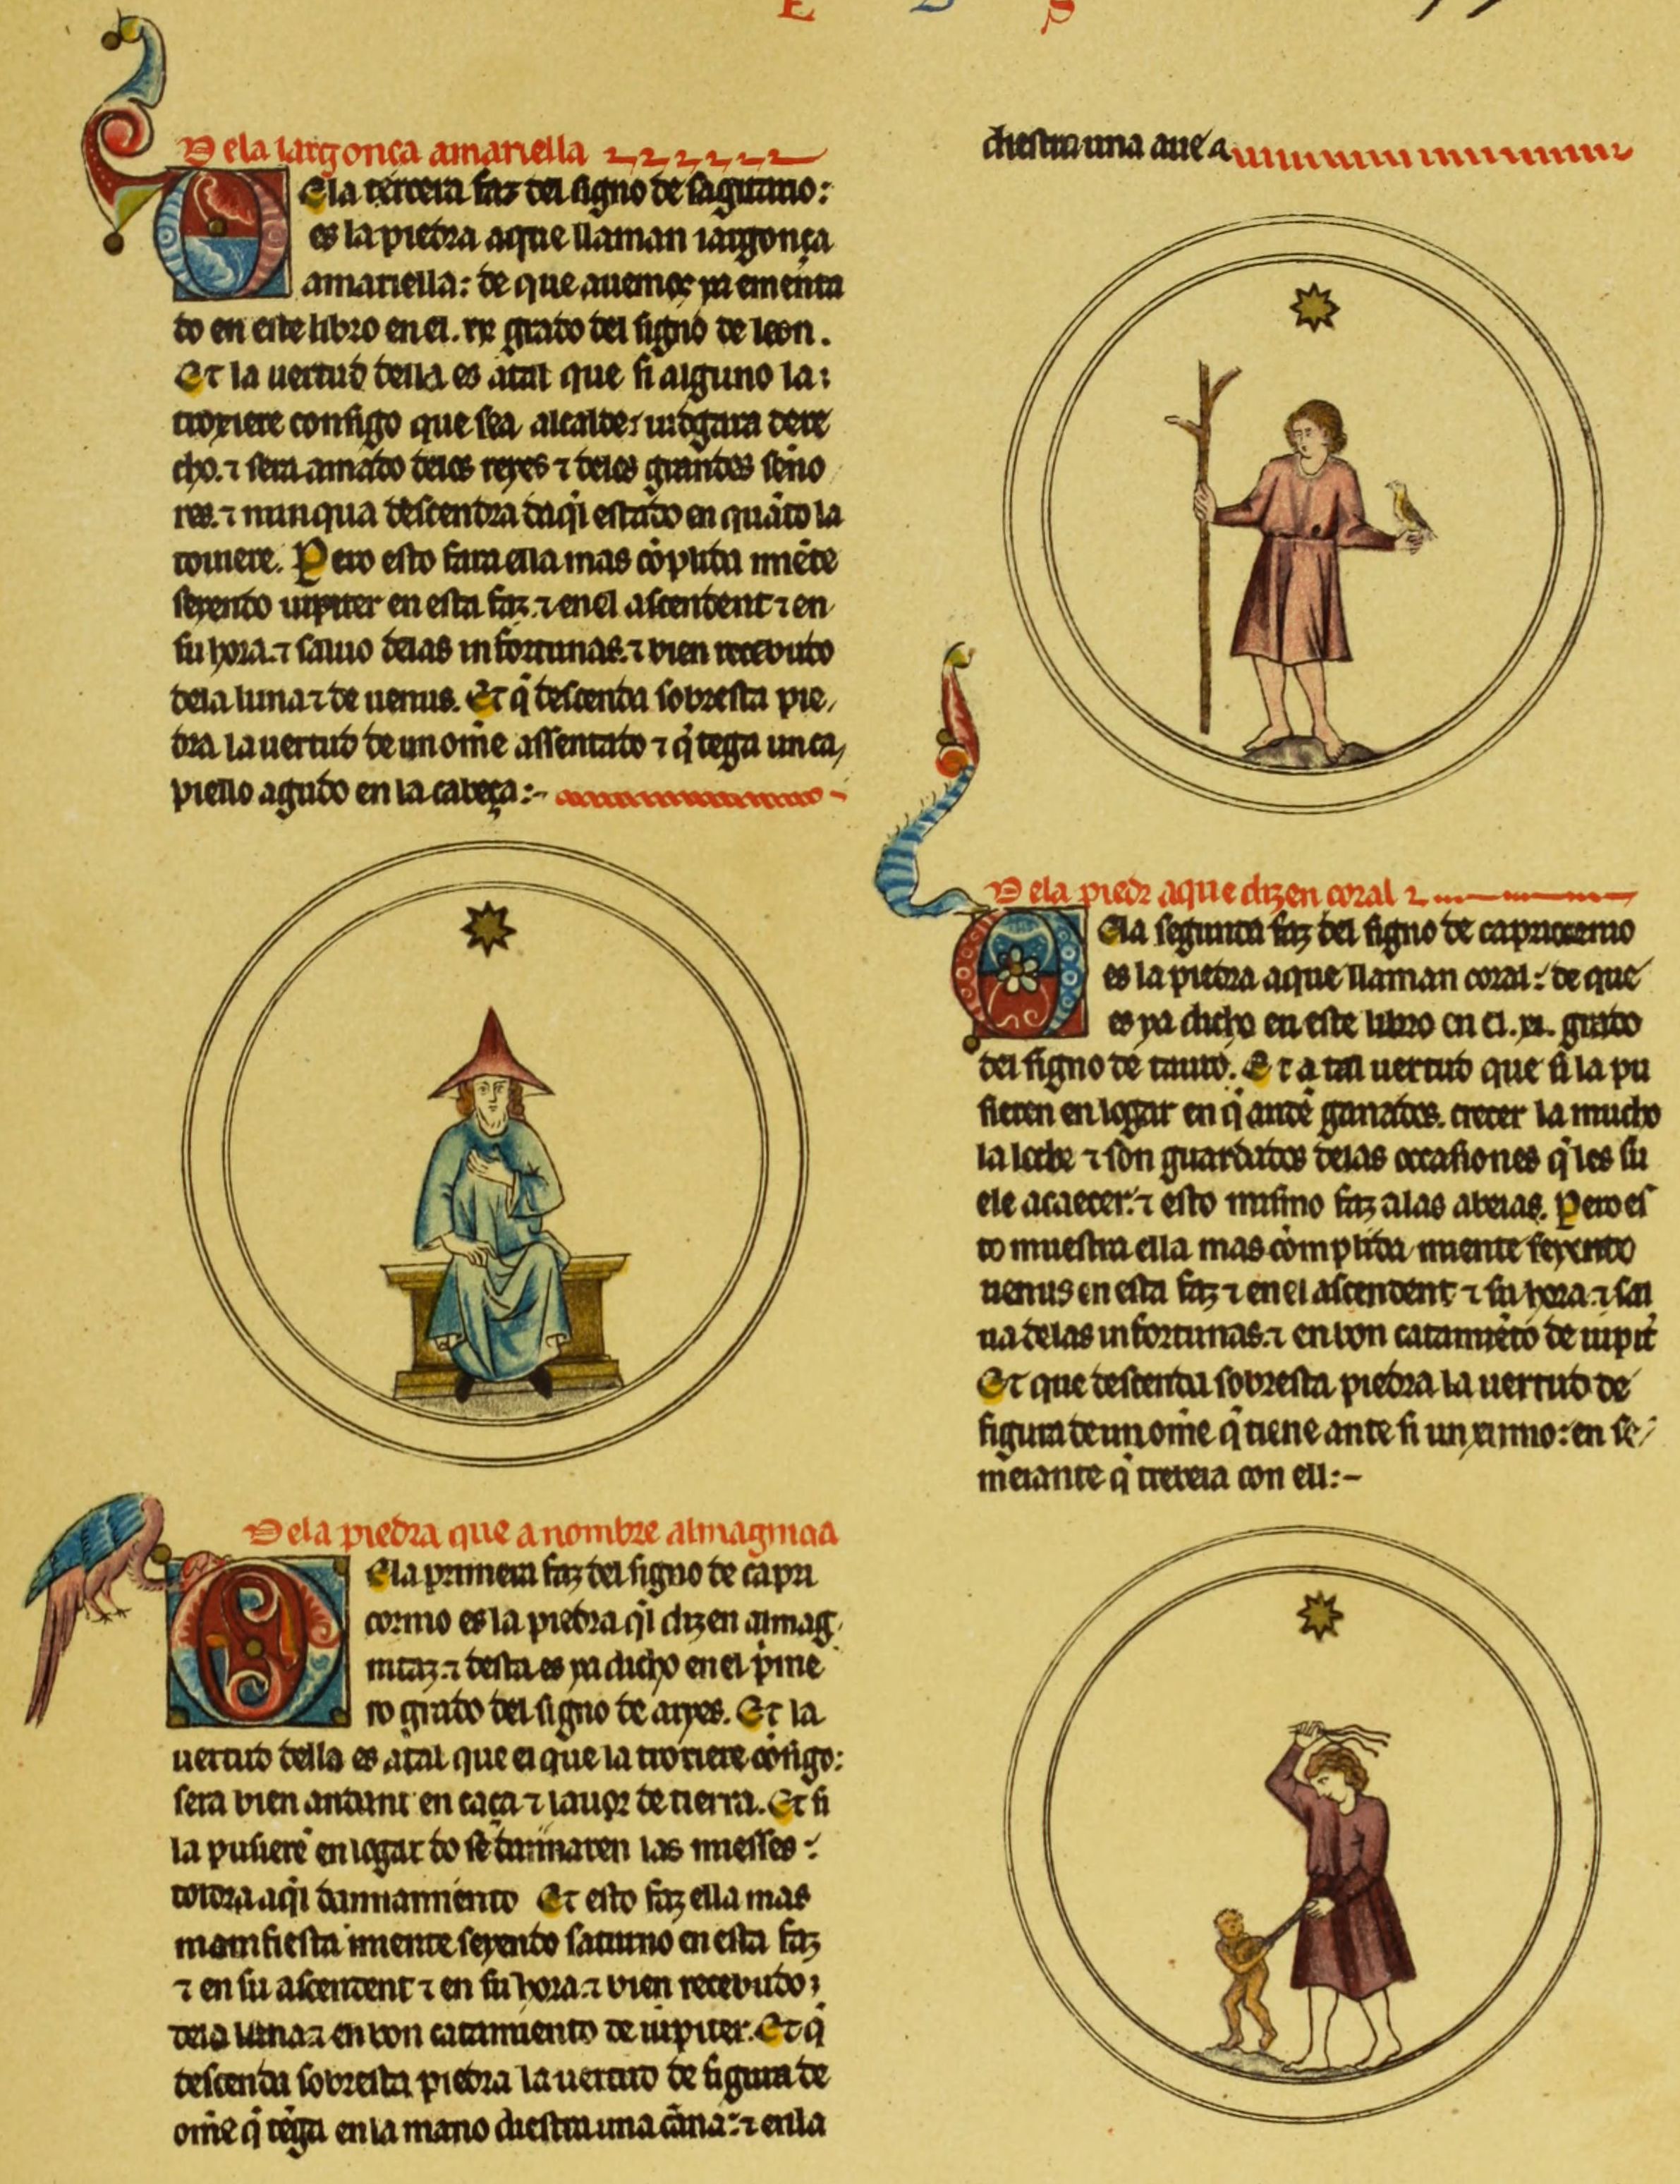 E L S
Dela iargonça amariella
Ela tercera faz del signo de sagitario:
es la piedra aque llaman iargonça
amariella: de que auemos ya ementa
do en este libro en el .xx. grado del signo de leon.
Et la uertud della es atal que si alguno la
troxiere consigo que sea alcalde: iudgara dere
cho. ⁊ sera amado delos reyes ⁊ delos grandes seño
res. ⁊ nunqua descendra daq̄l estado en quāto la
touiere. Pero esto fara ella mas cōplida miēte
seyendo iupiter en esta faz. ⁊ en el ascendent ⁊ en
su hora. ⁊ saluo delas infortunas. ⁊ bien recebudo
dela luna ⁊ de uenus. Et q̄ descenda sobresta pie
dra la uertud de un ome assentado ⁊ q̄ tega un ca
piello agudo en la cabeça:-
Dela piedra que a nombre almagnitaz
Ela primera faz del signo de capri
cornio es la piedra q̄l dizen almag
nitaz. ⁊ desta es ya dicho en el p̄me
ro grado del signo de aryes. Et la
uertud della es atal que el que la troxiere cōsigo:
sera bien andant en caça ⁊ lauor de tierra. Et si
la pusierē en logar do se dannaren las miesses:
toldra aq̄l dannamiento Et esto faz ella mas
manifiesta miente seyendo saturno en esta faz
⁊ en su ascendent ⁊ en su hora. ⁊ bien recebudo
dela luna ⁊ en bon catamiento de iupiter. Et q̄
descenda sobresta piedra la uertud de figura de
ome q̄ tēga en la mano diestra una caña: ⁊ en la
diestra una aue
Dela piedr aque dizen coral
Ela segunda faz del signo de capricornio
es la piedra aque llaman coral: de que
es ya dicho en este libro en el .xi. grado
del signo de tauro. Et a tal uertud que si la pu
sieren en logar en q̄ andē ganados. crecer la mucho
la leche ⁊ son guardados delas occasiones q̄ les su
ele acaecer. ⁊ esto mismo faz alas abeias. Pero es
to muestra ella mas complida miente seyendo
uenus en esta faz ⁊ en el ascendent ⁊ su hora. ⁊ sal
ua delas infortunas. ⁊ en bon catamiēto de iupit̄
Et que descenda sobresta piedra la uertud de
figura de un ome q̄ tiene ante si un ximio: en se
meiante q̄ trebeia con ell:-